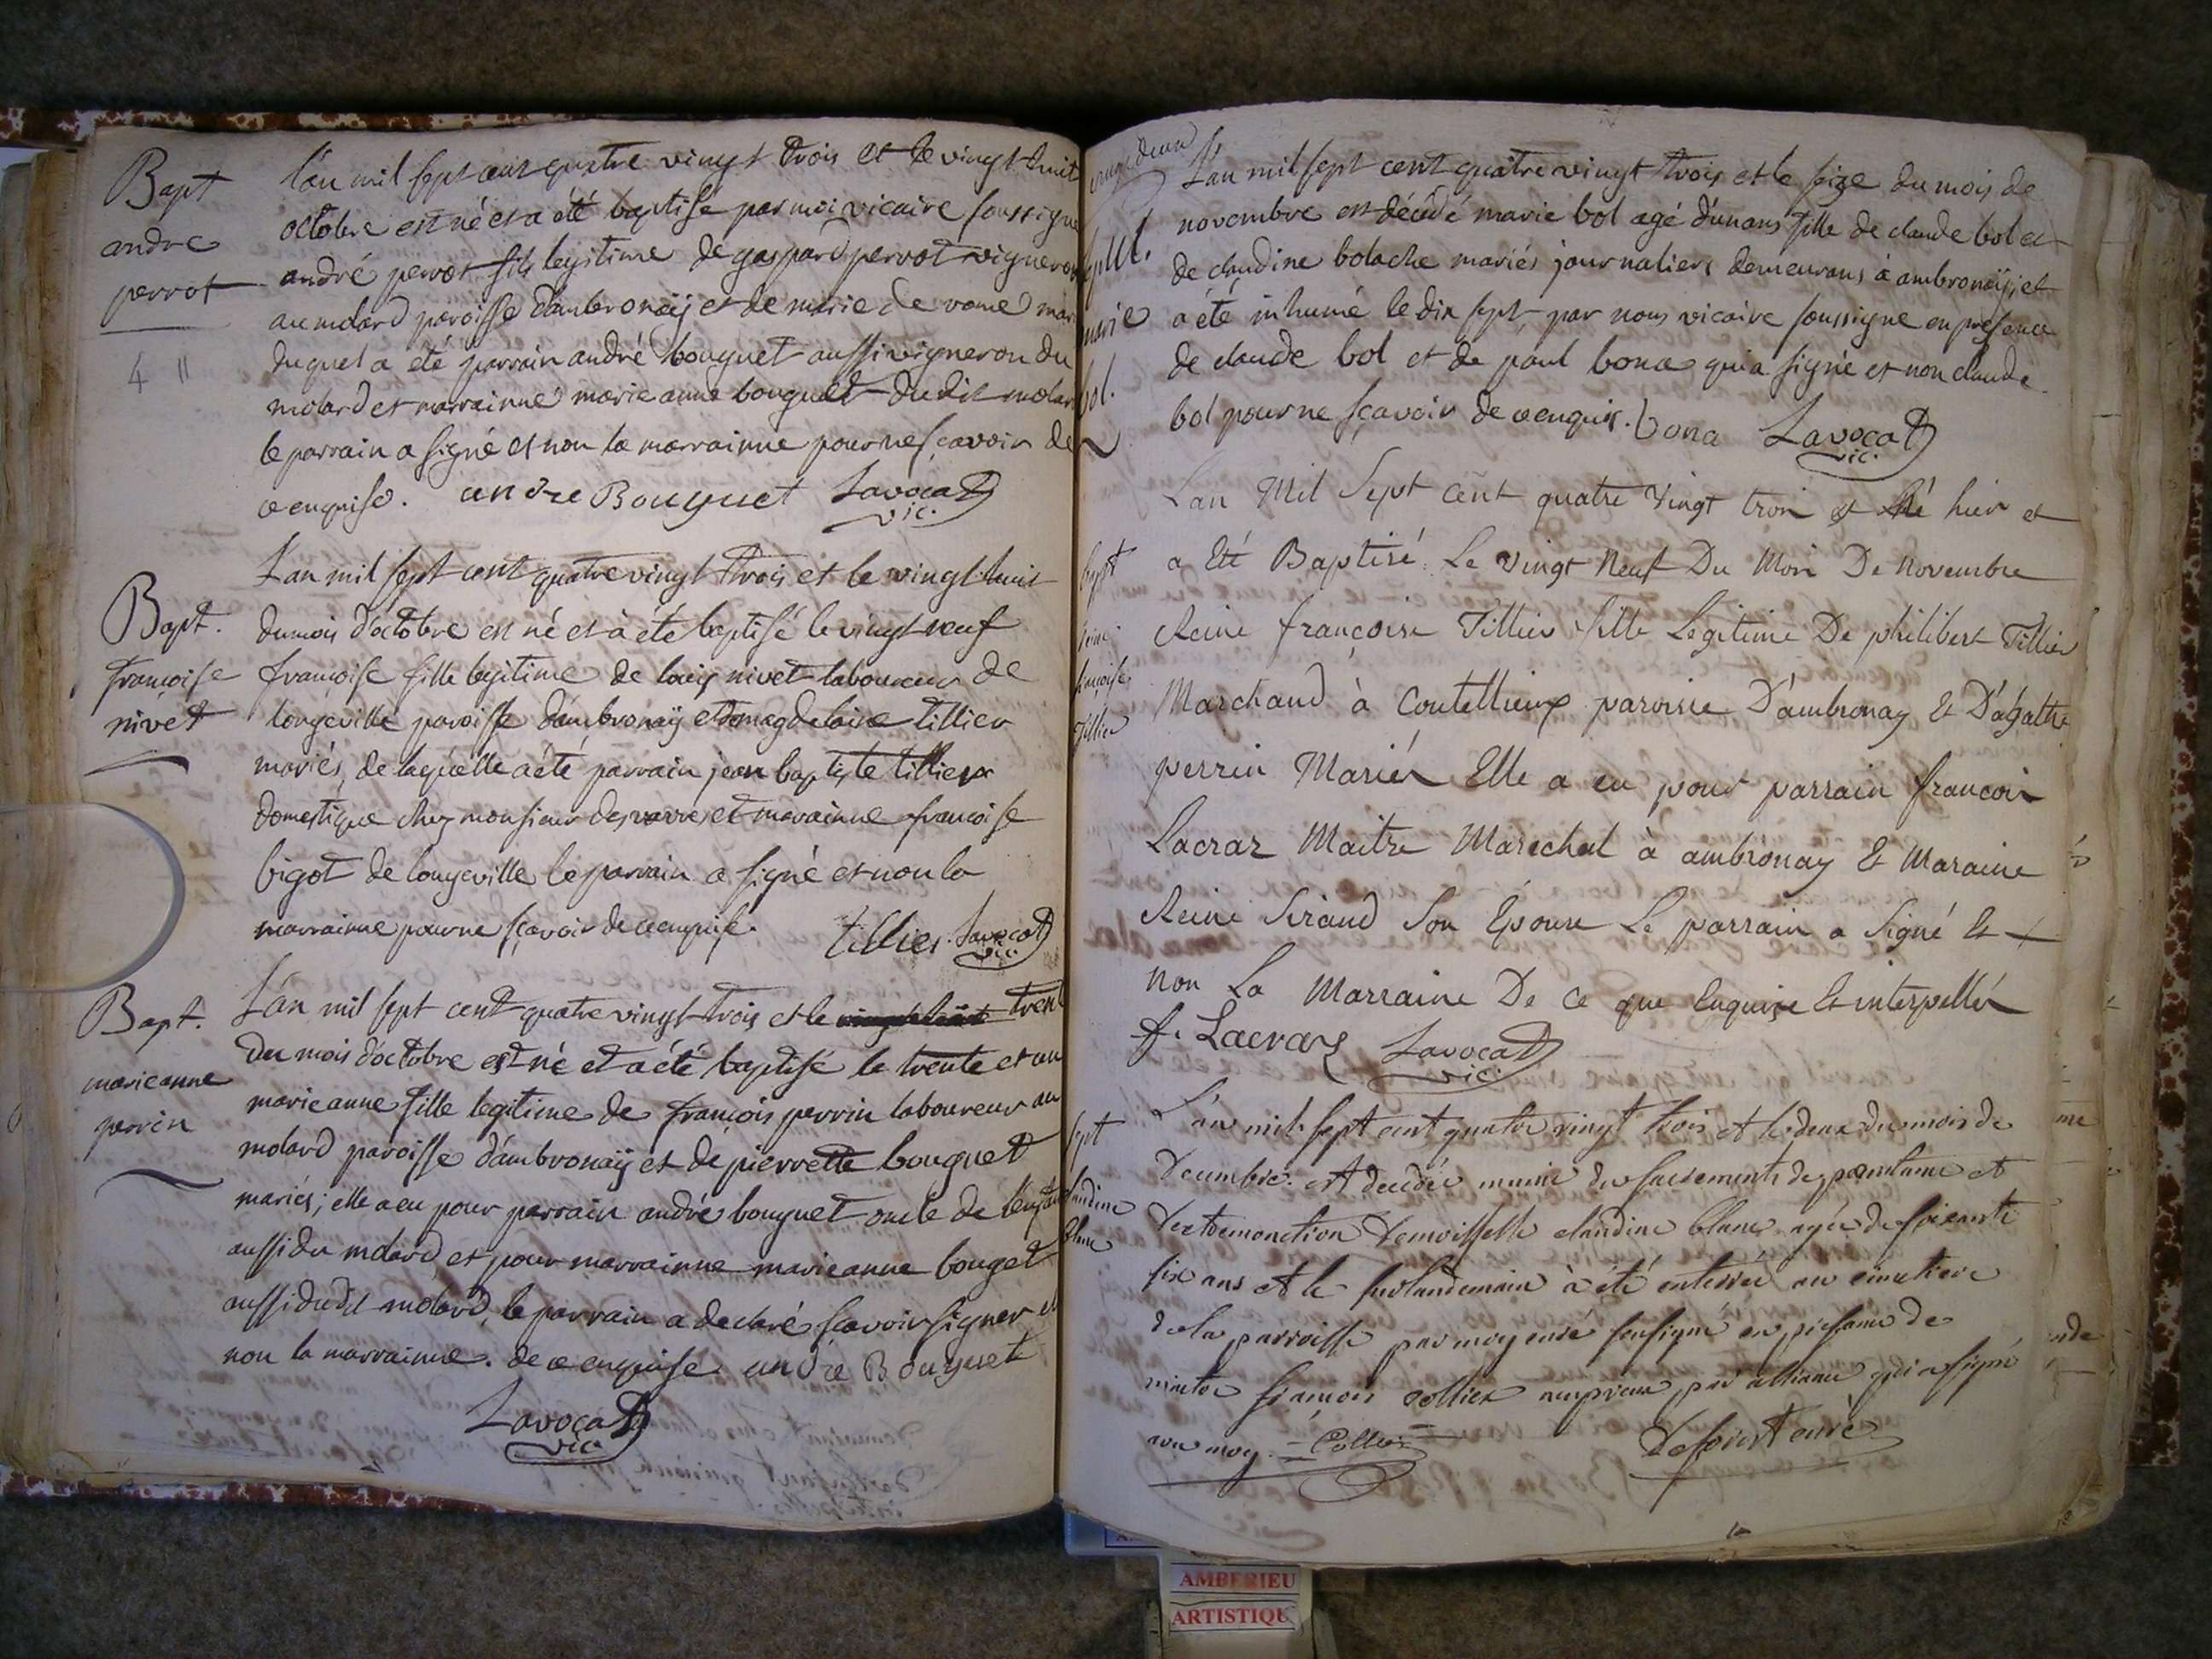 Bapt
andre
perrot
4 "
l'an mil sept cent quatre vingt trois et le vingt huit
octobre est né et a été baptisé par moi vicaire soussigné
andré perrot fils legitime de gaspard perrot vigneron
au molard paroisse d'ambronaÿ et de marie de rome mar
duquel a été parrain andré bouguet aussi vigneron du
molard et marrainne marie anne bouguet dudit molar
le parrain a signé et non la marrainne pour ne sçavoir de
ce enquise. andre Bouguet Lavocat
vic.
Bapt.
françoise
nivet
L'an mil sept cent quatre vingt trois et le vingt huit
du mois d'octobre est né et à été baptisé le vingt neuf
françoise fille legitime de louis nivet laboureur de
longeville paroisse d'ambronaÿ et de magdelaine tillier
mariés, de laquelle a été parrain jean baptiste tillier
domestique chez monsieur desvarres et marainne francoise
bigot de longeville le parrain a signé et non la
marrainne pour ne sçavoir de ce enquise.
tillier. Lavocat
vic.
Bapt.
marieanne
perrin
L'an mil sept cent quatre vingt trois et le vingt huit tren
du mois d'octobre est né et a été baptisé le trente et un
marieanne fille legitime de françois perrin laboureur au
molard paroisse d'ambronaÿ et de pierrette bouguet
mariés; elle a eu pour parrain andré bouguet oncle de l'enfan
aussi du molard, et pour marrainne marieanne bouget
aussi dudit molard, le parrain a declaré sçavoir signer et
non la marrainne. de ce enquise andre Bouguet
Lavocat
vic.
sepult.
marie
bol.
L'an mil sept cent quatre vingt trois et le seize du mois de
novembre est décédé marie bol agé d'un ans fille de claude bol et
de claudine bolache mariés journaliers demeurans à ambronaÿ, et
a été inhumé le dix sept, par nous vicaire soussigne en presence
de claude bol et de paul bona qui a signé et non claude
bol pour ne sçavoir de ce enquis. bona Lavocat
vic.
bapt
reine
françoise
Tillier
L'an Mil Sept cent quatre Vingt trois et Né hier et
a Eté Baptisé Le Vingt Neuf Du Mois De Novembre
Reine françoise Tillier fille Legitime De philibert Tillier
Marchand à Coutellieux paroisse D'ambronay & D'agathe
perrin Mariés Elle a eu pour parrain francois
Lacraz Maitre Marechal à ambronay & Maraine
Reine Siraud Son Epouse Le parrain a Signé &
non La Marraine De Ce que Enquise & interpellés
f. Lacraz Lavocat
vic.
sept
claudine
blanc
L'an mil sept cent quatre vingt trois et le deux du mois de
decembre est decedée munie des sacrements de penitence et
d'extremonction demoiselle claudine blanc agée de soixante
six ans et le surlandemain à été enterrée au cimetiere
de la parroisse par moy curé sousigné en presence de
françois collier par alliance qui a signé
avec moy. = Collier =
curé
AMBERIEU
ARTISTIQU